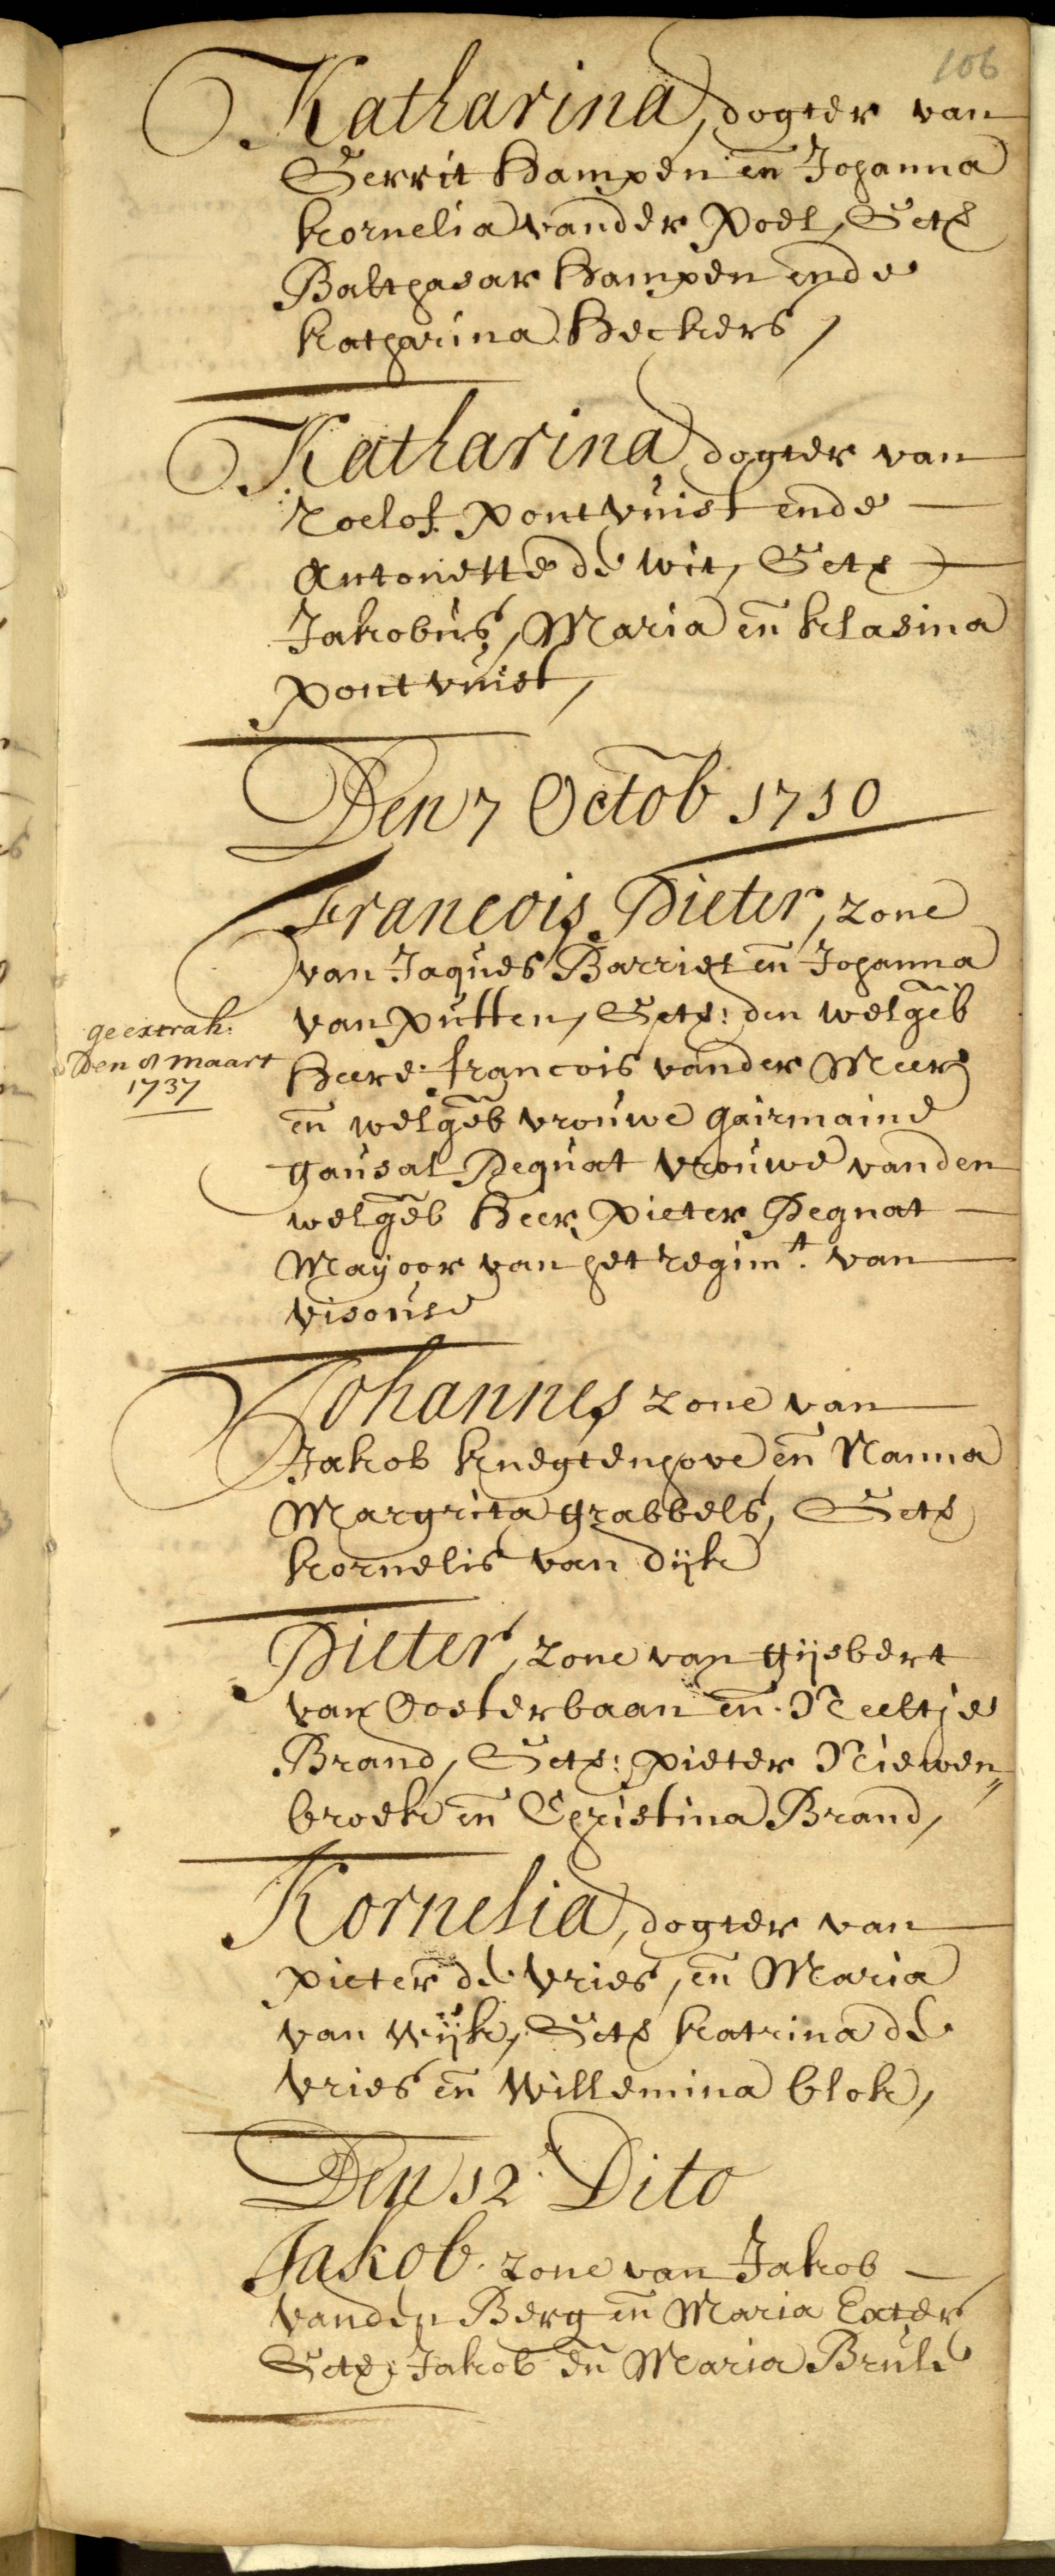 106
Katharina, dogter van
Gerrit Hampen en̄ Johanna
kornelia vander Poel, Getƺ
Balthasar Hampen ende
katharina Heckers,
Katharina dogter van
Roelof Pontvuist ende
Antonette de wit, Getƺ
Jakobus, Maria en̄ klasina
Pontvuist,
Den 7 Octob 1710
Francois Pieter, zone
van Jaques Barriet en̄ Johanna
van Putten, Getƺ: den welgeb
Heere francois vander Meer
en̄ welgeb vrouwe gairmaine
gausal Dequat vrouwe vanden
welgeb Heer Pieter Degnat
Mayoor van het regimt. van
visouse
geextrah:
Den 8 maart
1737
Johannes zone van
Jakob knegtenhove en̄ Nanna
Margrita grabbels, Getƺ
kornelis van dijk
Pieter, zone van gijsbert
van Oosterbaan en̄ Neeltje
Brand, Getƺ: Pieter Niewen„
broek en̄ Christina Brand,
Kornelia, dogter van
Pieter de vries, en̄ Maria
van Wijk, Getƺ katrina de
vries en̄ Willemina blok,
Den 12 Dito
Jakob zone van Jakob
vanden Berg en̄ Maria Exter
Getƺ: Jakob en̄ Maria Brule